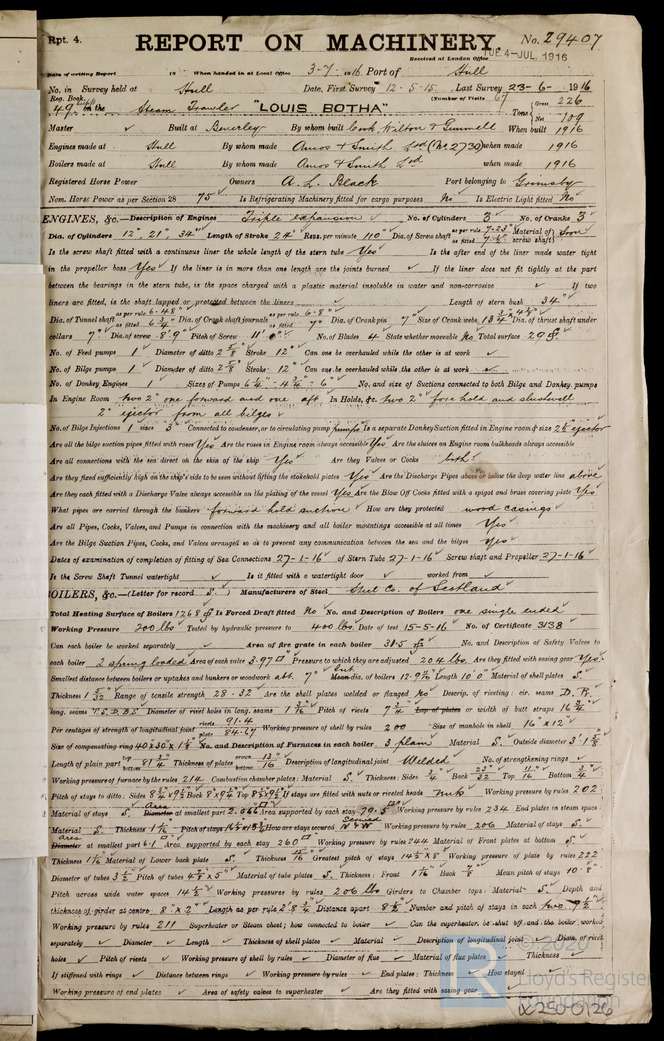 Rpt. 4. REPORT ON MACHINERY. No. 29407
Received at London Office TUE 4-JUL. 1916
Date of writing Report 19 When handed in at Local Office 3-7-1916 Port of Hull
No. in Survey held at Hull Date, First Survey 12-5-15 Last Survey 23-6-1916
Reg. Book. (Number of Visits 67
49 on the Steam Trawler "LOUIS BOTHA" Tons Gross 226 Net 109
Master Built at Beverley By whom built Cook Welton & Gemmell When built 1916
Engines made at Hull By whom made Amos & Smith Ltd (No. 2730) when made 1916
Boilers made at Hull By whom made Amos & Smith Ltd when made 1916
Registered Horse Power Owners A. L. Black Port belonging to Grimsby
Nom. Horse Power as per Section 28 75 Is Refrigerating Machinery fitted for cargo purposes No Is Electric Light fitted No
ENGINES, &c.—Description of Engines Triple expansion No. of Cylinders 3 No. of Cranks 3
Dia. of Cylinders 12", 21", 34" Length of Stroke 24" Revs. per minute 110 Dia. of Screw shaft as per rule 7.23" as fitted Material of screw shaft Iron
Is the screw shaft fitted with a continuous liner the whole length of the stern tube Yes Is the after end of the liner made water tight
in the propeller boss Yes If the liner is in more than one length are the joints burned If the liner does not fit tightly at the part
between the bearings in the stern tube, is the space charged with a plastic material insoluble in water and non-corrosive If two
liners are fitted, is the shaft lapped or protected between the liners Length of stern bush 34"
Dia. of Tunnel shaft as per rule 6.48" as fitted 6 3/4" Dia. of Crank shaft journals as per rule 6.8" as fitted 7" Dia. of Crank pin 7" Size of Crank webs Dia. of thrust shaft under
collars 7" Dia. of screw 8'.9" Pitch of Screw 11'.0" No. of Blades 4 State whether moveable No Total surface 29
No. of Feed pumps 1 Diameter of ditto 2 5/8" Stroke 12" Can one be overhauled while the other is at work
No. of Bilge pumps 1 Diameter of ditto 2 5/8" Stroke 12" Can one be overhauled while the other is at work
No. of Donkey Engines 1 Sizes of Pumps 6 1/2" - 4 3/4" - 6" No. and size of Suctions connected to both Bilge and Donkey pumps
In Engine Room two 2" one forward and one aft In Holds, &c. two 2" fore hold and slushwell
2" ejector from all bilges
No. of Bilge Injections 1 sizes 3" Connected to condenser, or to circulating pump pump Is a separate Donkey Suction fitted in Engine room & size 2 1/2" ejector
Are all the bilge suction pipes fitted with roses Yes Are the roses in Engine room always accessible Yes Are the sluices on Engine room bulkheads always accessible
Are all connections with the sea direct on the skin of the ship Yes Are they Valves or Cocks both
Are they fixed sufficiently high on the ship's side to be seen without lifting the stokehold plates Yes Are the Discharge Pipes above or below the deep water line above
Are they each fitted with a Discharge Valve always accessible on the plating of the vessel Yes Are the Blow Off Cocks fitted with a spigot and brass covering plate Yes
What pipes are carried through the bunkers forward hold suction How are they protected wood casings
Are all Pipes, Cocks, Valves, and Pumps in connection with the machinery and all boiler mountings accessible at all times Yes
Are the Bilge Suction Pipes, Cocks, and Valves arranged so as to prevent any communication between the sea and the bilges Yes
Dates of examination of completion of fitting of Sea Connections 27-1-16 of Stern Tube 27-1-16 Screw shaft and Propeller 27-1-16
Is the Screw Shaft Tunnel watertight Is it fitted with a watertight door worked from
BOILERS, &c.—(Letter for record S.) Manufacturers of Steel Steel Co. of Scotland
Total Heating Surface of Boilers 1268 Is Forced Draft fitted No No. and Description of Boilers one single ended
Working Pressure 200 lbs Tested by hydraulic pressure to 400 lbs Date of test 15-5-16 No. of Certificate 3138
Can each boiler be worked separately Area of fire grate in each boiler 38.5 No. and Description of Safety Valves to
each boiler 2 spring loaded Area of each valve 3.97 Pressure to which they are adjusted 204 lbs. Are they fitted with easing gear Yes
Smallest distance between boilers or uptakes and bunkers or woodwork abt. 7" Mean dia. of boilers 12-9 Length 10'0" Material of shell plates S.
Thickness 1 Range of tensile strength 28-32 Are the shell plates welded or flanged No Descrip. of riveting: cir. seams D. R.
long. seams T.R.D.B.S. Diameter of rivet holes in long. seams 1 3/16 Pitch of rivets 7 3/4 Lap of plates or width of butt straps 16 3/4"
Per centages of strength of longitudinal joint rivets 91.4 plate 84.67 Working pressure of shell by rules 200 Size of manhole in shell 16" x 12"
Size of compensating ring No. and Description of Furnaces in each boiler 3 plain Material S. Outside diameter 3'.1
Length of plain part top bottom 81 3/4 Thickness of plates crown bottom 13/16 Description of longitudinal joint Welded No. of strengthening rings
Working pressure of furnace by the rules 214 Combustion chamber plates: Material S. Thickness: Sides 3/4 Back 23/32 Top 11/16 Bottom 3/4
Pitch of stays to ditto: Sides Back Top If stays are fitted with nuts or riveted heads nuts Working pressure by rules 202
Material of stays S. Area Diameter at smallest part 2.066 Area supported by each stay 79.5 Working pressure by rules 234 End plates in steam space:
Material S. Thickness 1 Pitch of stays How are stays secured Working pressure by rules 206 Material of stays S.
area Diameter at smallest part 6.1 Area supported by each stay 260 Working pressure by rules 244 Material of Front plates at bottom S.
Thickness Material of Lower back plate S. Thickness Greatest pitch of stays 14 1/2 x 8 Working pressure of plate by rules 222
Diameter of tubes 3 1/2 Pitch of tubes Material of tube plates S. Thickness: Front Back 7/8" Mean pitch of stays 10.8
Pitch across wide water spaces 14 1/2" Working pressures by rules 206 lbs Girders to Chamber tops: Material S. Depth and
thickness of girder at centre 8" x 2" Length as per rule 2'.8 3/4 Distance apart 8 1/2 Number and pitch of stays in each two 9 1/2"
Working pressure by rules 211 Superheater or Steam chest; how connected to boiler Can the superheater be shut off and the boiler worked
separately Diameter Length Thickness of shell plates Material Description of longitudinal joint Diam. of rivet
holes Pitch of rivets Working pressure of shell by rules Diameter of flue Material of flue plates Thickness
If stiffened with rings Distance between rings Working pressure by rules End plates: Thickness How stayed
Working pressure of end plates Area of safety valves to superheater Are they fitted with easing gear
© 2020
Lloyd's Register
Foundation